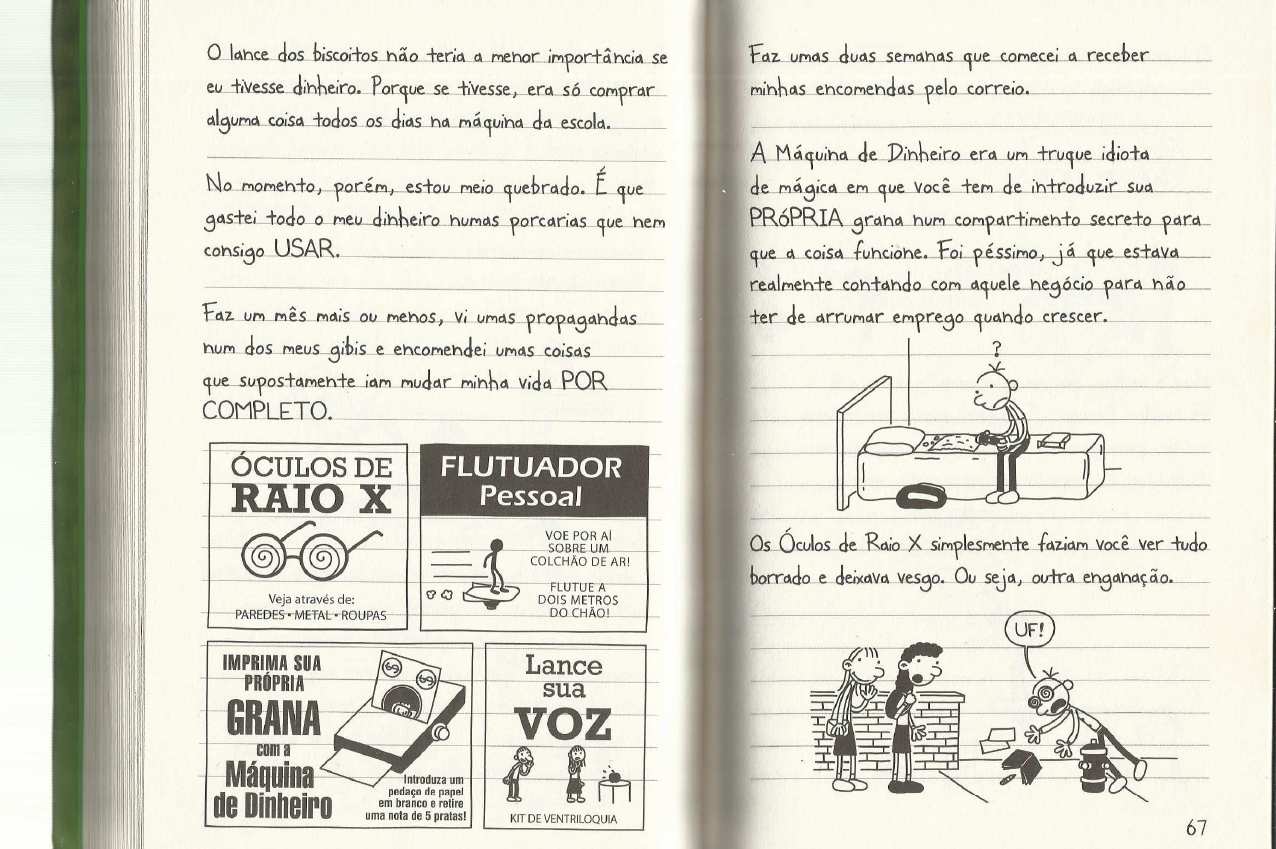 O lance dos biscoitos não teria a menor importância se
eu tivesse dinheiro. Porque se tivesse, era só comprar
alguma coisa todos os dias na máquina da escola.
No momento, porém, estou meio quebrado. É que
gastei todo o meu dinheiro numas porcarias que nem
consigo USAR.
Faz um mês mais ou menos, vi umas propagandas
num dos meus gibis e encomendei umas coisas
que supostamente iam mudar minha vida POR
COMPLETO.
ÓCULOS DE
RAIO X
Veja através de:
PAREDES • METAL • ROUPAS
FLUTUADOR
Pessoal
VOE POR AÍ
SOBRE UM
COLCHÃO DE AR!
FLUTUE A
DOIS METROS
DO CHÃO!
IMPRIMA SUA
PRÓPRIA
GRANA
com a
Máquina
de Dinheiro
Introduza um
pedaço de papel
em branco e retire
uma nota de 5 pratas!
Lance
sua
VOZ
KIT DE VENTRILOQUIA
Faz umas duas semanas que comecei a receber
minhas encomendas pelo correio.
A Máquina de Dinheiro era um truque idiota
de mágica em que você tem de introduzir sua
PRÓPRIA grana num compartimento secreto para
que a coisa funcione. Foi péssimo, já que estava
realmente contando com aquele negócio para não
ter de arrumar emprego quando crescer.
?
Os Óculos de Raio X simplesmente faziam você ver tudo
borrado e deixava vesgo. Ou seja, outra enganação.
UF!
67